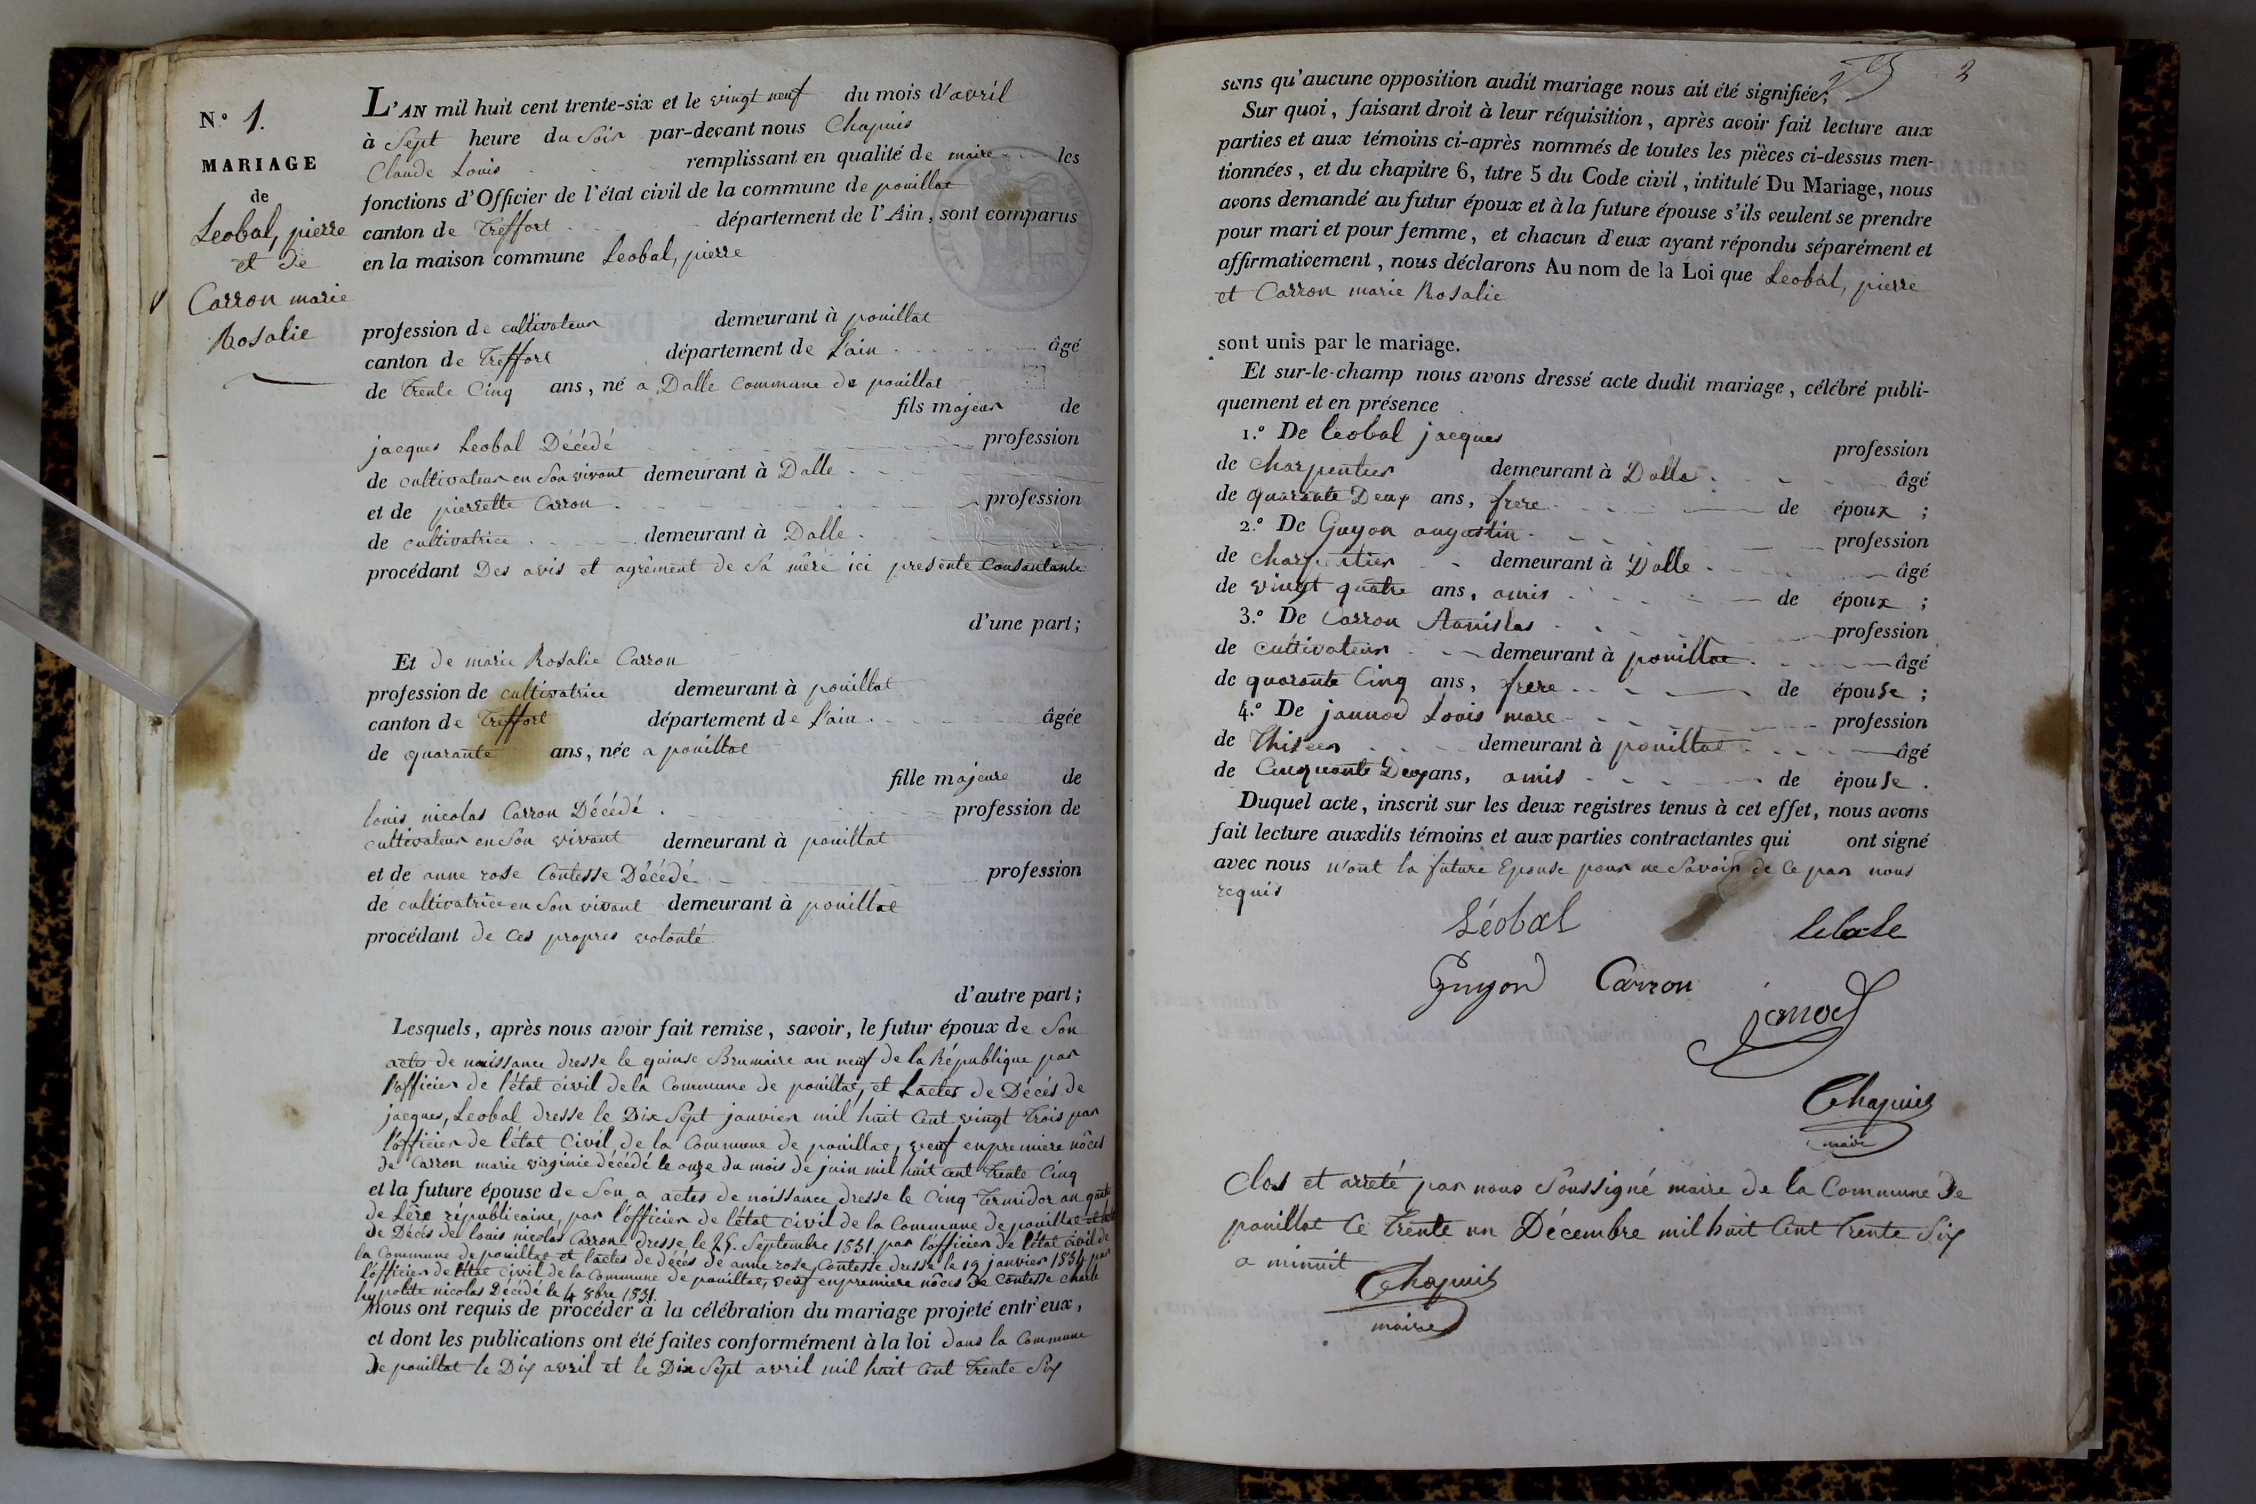 N.º 1.
MARIAGE
de
Leobal, pierre
et de
Carron marie
Rosalie
L'AN mil huit cent trente-six et le vingt neuf du mois d'avril
à Sept heure du Soir par-devant nous Chapuis
Claude Louis remplissant en qualité de maire les
fonctions d'Officier de l'état civil de la commune de pouillat
canton de Treffort département de l'Ain, sont comparus
en la maison commune Leobal, pierre
profession de cultivateur demeurant à pouillat
canton de Treffort département de L'ain âgé
de Trente Cinq ans, né a Dalle Commune de pouillat
fils majeur de
jacques Leobal Décédé profession
de cultivateur en Son vivant demeurant à Dalle
et de pierrette Carron profession
de cultivatrice demeurant à Dalle
procédant Des avis et agrément de Sa mère ici presente Consentante
d'une part;
Et de marie Rosalie Carron
profession de cultivatrice demeurant à pouillat
canton de Treffort département de L'ain âgée
de quarante ans, née a pouillat
fille majeure de
louis nicolas Carron Décédé profession de
cultivateur en Son vivant demeurant à pouillat
et de anne rose Contesse Décédé profession
de cultivatrice en Son vivant demeurant à pouillat
procédant de Ces propres volonté
d'autre part;
Lesquels, après nous avoir fait remise, savoir, le futur époux de Son
acte de naissance dresse le quinse Brumaire an neuf de la République par
l'officier de l'état civil de la Commune de pouillat, et Lactes de Décés de
jacques, Leobal dresse le Dix Sept janvier mil huit Cent vingt Trois par
l'officier de l'état Civil de la Commune de pouillat, veuf enpremiere nôces
de Carron marie virginie décédé le onze du mois de juin mil huit Cent Trente Cinq
et la future épouse de Son a actes de naissance dresse le Cinq Termidor an quatre
de L'ère républicaine, par l'officier de l'état civil de la Commune de pouillat et
de Décés de louis nicolas Carron dresse, le 25. Septembre 1831 par l'officier de l'état civil de
la Commune de pouillat et l'actes de décés de anne rose, Contesse dresse le 19 janvier 1834 par
l'officier de l'état civil de la Commune de pouillat, veuf enpremiere nôces de Contesse charle
hypolite nicolas Décédé le 4 8bre 1831.
Nous ont requis de procéder à la célébration du mariage projeté entr'eux,
et dont les publications ont été faites conformément à la loi dans la Commune
De pouillat le Dix avril et le Dix Sept avril mil huit Cent Trente Six
2
sans qu'aucune opposition audit mariage nous ait été signifiée;
Sur quoi, faisant droit à leur réquisition, après avoir fait lecture aux
parties et aux témoins ci-après nommés de toutes les pièces ci-dessus men-
tionnées, et du chapitre 6, titre 5 du Code civil, intitulé Du Mariage, nous
avons demandé au futur époux et à la future épouse s'ils veulent se prendre
pour mari et pour femme, et chacun d'eux ayant répondu séparément et
affirmativement, nous déclarons Au nom de la Loi que Leobal, pierre
et Carron marie Rosalie
sont unis par le mariage.
Et sur-le-champ nous avons dressé acte dudit mariage, célébré publi-
quement et en présence
1.º De Leobal jacques profession
de Charpentier demeurant à Dalle âgé
de quarante Deux ans, frere de époux;
2.º De Guyon augustin profession
de Charpentier demeurant à Dalle âgé
de vingt quatre ans, amis de époux;
3.º De Carron Stanislas profession
de cultivateur demeurant à pouillat âgé
de quarante Cinq ans, frere de épouse;
4.º De jannod Louis marc profession
de Thiseer demeurant à pouillat âgé
de Cinquante Deux ans, amis de épouse.
Duquel acte, inscrit sur les deux registres tenus à cet effet, nous avons
fait lecture auxdits témoins et aux parties contractantes qui ont signé
avec nous n'ont la future Epouse pour ne Savoir de Ce par nous
requis
Léobal
Guyon Carron
janod
Chapuis
maire
Clos et arreté par nous Soussigné maire de la Commune De
pouillat Ce Trente un Décembre mil huit Cent Trente Six
a minuit
Chapuis
maire